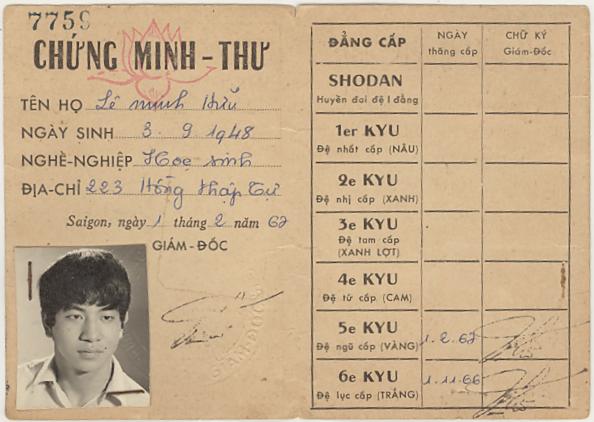 7759
CHỨNG MINH-THƯ
TÊN HỌ Lê minh Hữu
NGÀY SINH 3.9.1948
NGHỀ-NGHIỆP Học sinh
ĐỊA-CHỈ 223 Hồng thập Tự
Saigon, ngày 1 tháng 2 năm 67
GIÁM-ĐỐC
ĐẲNG CẤP
NGÀY
thăng cấp
CHỮ KÝ
Giám-Đốc
SHODAN
Huyền đai đệ I đẳng
1er KYU
Đệ nhất cấp (NÂU)
2e KYU
Đệ nhị cấp (XANH)
3e KYU
Đệ tam cấp
(XANH LỢT)
4e KYU
Đệ tứ cấp (CAM)
5e KYU
Đệ ngũ cấp (VÀNG) 1.2.67
6e KYU
Đệ lục cấp (TRẮNG) 1.11.66